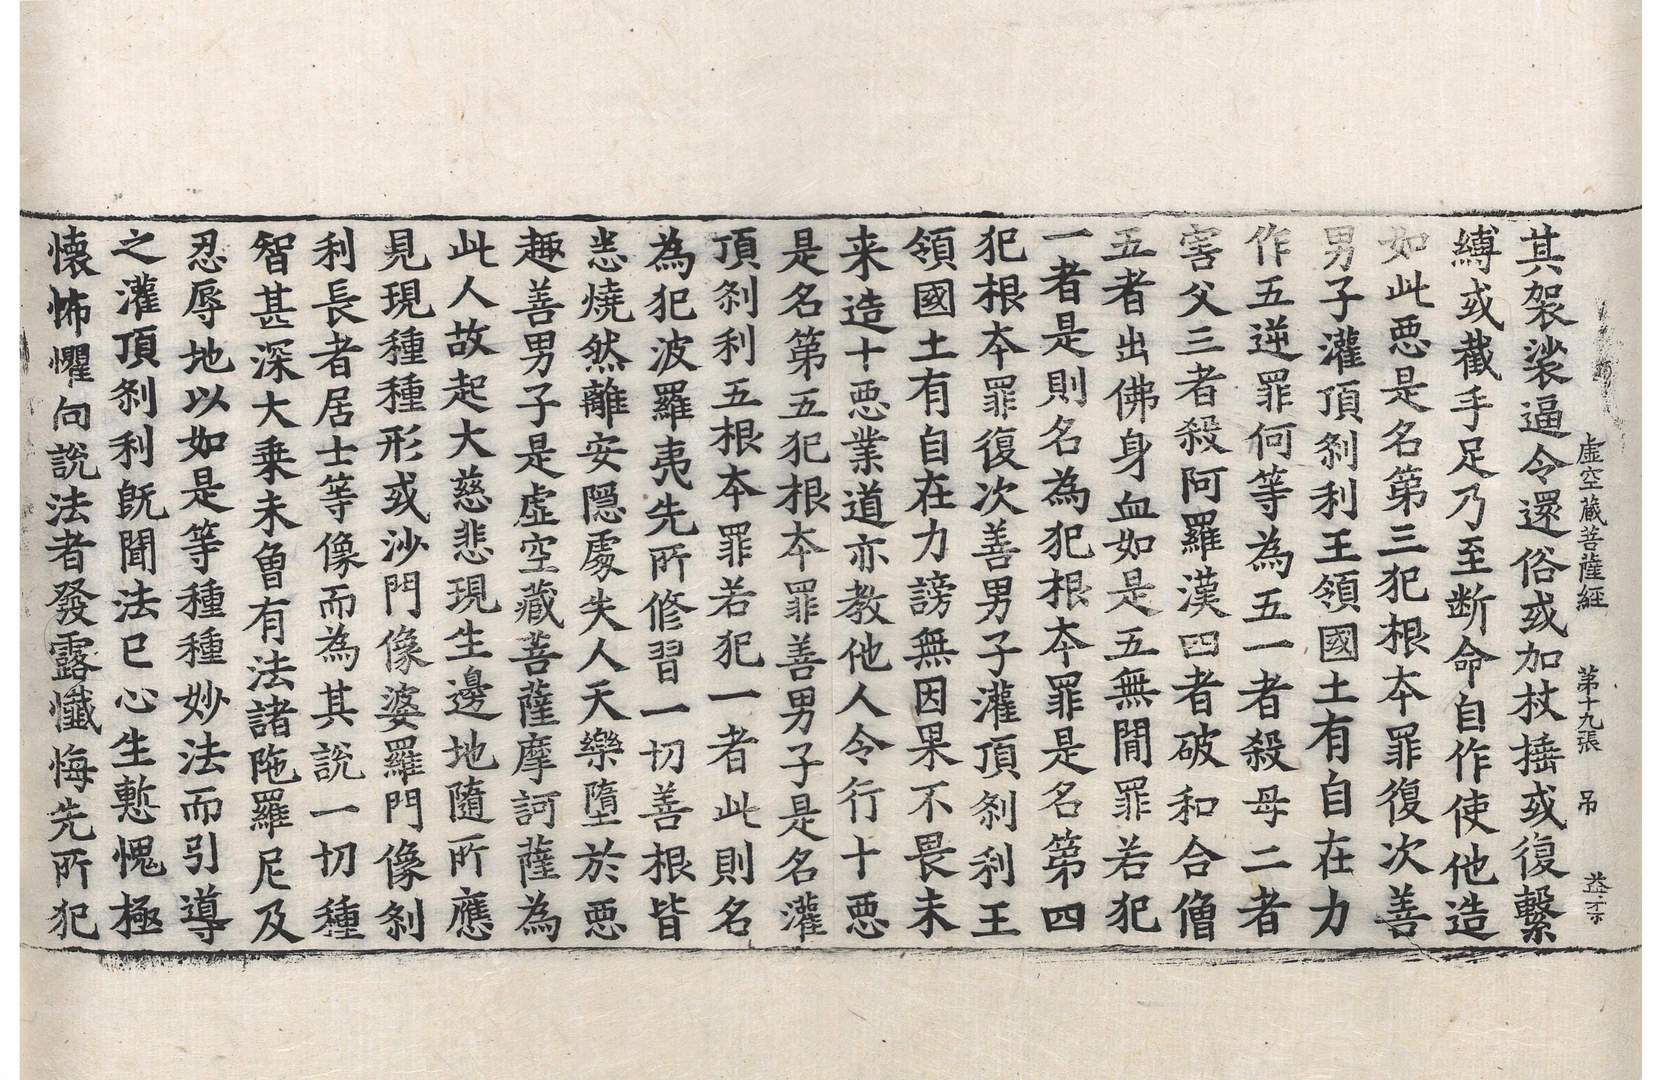 虛空藏菩薩經　第十九張　弔　益才
其袈裟逼令還俗或加杖捶或復繫
縛或截手足乃至断命自作使他造
如此惡是名第三犯根夲罪復次善
男子灌頂刹利王領國土有自在力
作五逆罪何等為五一者殺母二者
害父三者殺阿羅漢四者破和合僧
五者出佛身血如是五無閒罪若犯
一者是則名為犯根夲罪是名第四
犯根夲罪復次善男子灌頂刹利王
領國土有自在力謗無因果不畏未
来造十惡業道亦教他人令行十惡
是名第五犯根夲罪善男子是名灌
頂刹利五根夲罪若犯一者此則名
為犯波羅夷先所修習一切善根皆
悉燒然離安隱處失人天樂墮於惡
趣善男子是虛空藏菩薩摩訶薩為
此人故起大慈悲現生邊地隨所應
見現種種形或沙門像婆羅門像刹
利長者居士等像而為其說一切種
智甚深大乘未曾有法諸陁羅尼及
忍辱地以如是等種種妙法而引導
之灌頂刹利旣聞法已心生慙愧極
懷怖懼向說法者發露懺悔先所犯